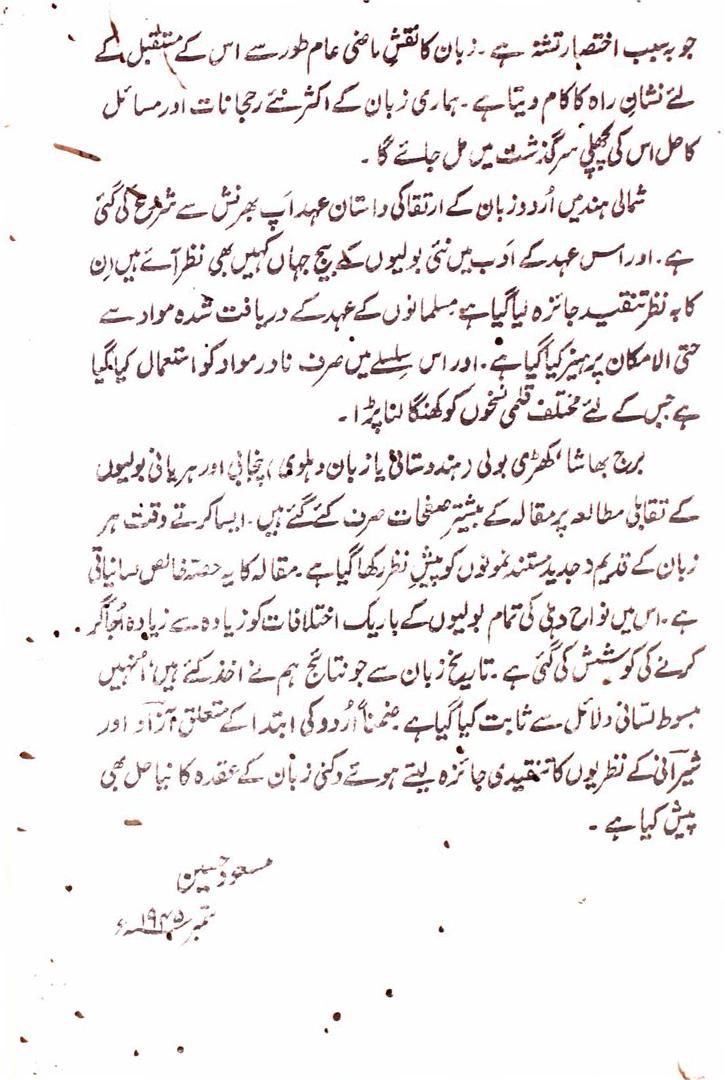 جو بہ سبب اختصار تشنہ ہے ۔ زبان کا نقشِ ماضی عام طور سے اس کے مستقبل کے
لئے نشانِ راہ کا کام دیتا ہے ۔ ہماری زبان کے اکثر نئے رجحانات اور مسائل
کا حل اس کی پچھلی سرگزشت میں مل جائے گا ۔
شمالی ہند میں اُردو زبان کے ارتقا کی داستان عہد اَپ بھرنش سے شروع کی گئی
ہے ۔ اور اس عہد کے ادَب میں نئی بولیوں کے بیج جہاں کہیں بھی نظر آئے ہیں اِن
کا بہ نظر تنقید جائزہ لیا گیا ہے مسلمانوں کے عہد کے دریافت شدہ مواد سے
حتی الامکان پرہیز کیا گیا ہے ۔ اور اس سِلسِلے میں صرف نادر مواد کو استعمال کیا گیا
ہے جس کے لئے مختلف قلمی نسخوں کو کھنگالنا پڑا ۔
برج بھاشا، کھڑی بولی (ہندوستانی یا زبان دہلوی) پنجابی اور ہریانی بولیوں
کے تقابلی مطالعہ پر مقالہ کے بیشتر صفحات صرف کئے گئے ہیں ۔ ایسا کرتے وقت ہر
زبان کے قدیم و جدید مستند نمونوں کو پیشِ نظر رکھا گیا ہے ۔ مقالہ کا یہ حصہ خالص لسانیاتی
ہے ۔ اس میں نواح دہلی کی تمام بولیوں کے باریک اختلافات کو زیادہ سے زیادہ اُجاگر
کرنے کی کوشش کی گئی ہے ۔ تاریخ زبان سے جو نتائج ہم نے اخذ کئے ہیں، اُنہیں
مبسوط لسانی دلائل سے ثابت کیا گیا ہے ۔ ضمناً اُردو کی ابتدا کے متعلق آزاد اور
شیرانی کے نظریوں کا تنقیدی جائزہ لیتے ہوئے دکنی زبان کے عقدہ کا نیا حل بھی
پیش کیا ہے ۔
مسعود حسین
ستمبر ۱۹۴۵ء